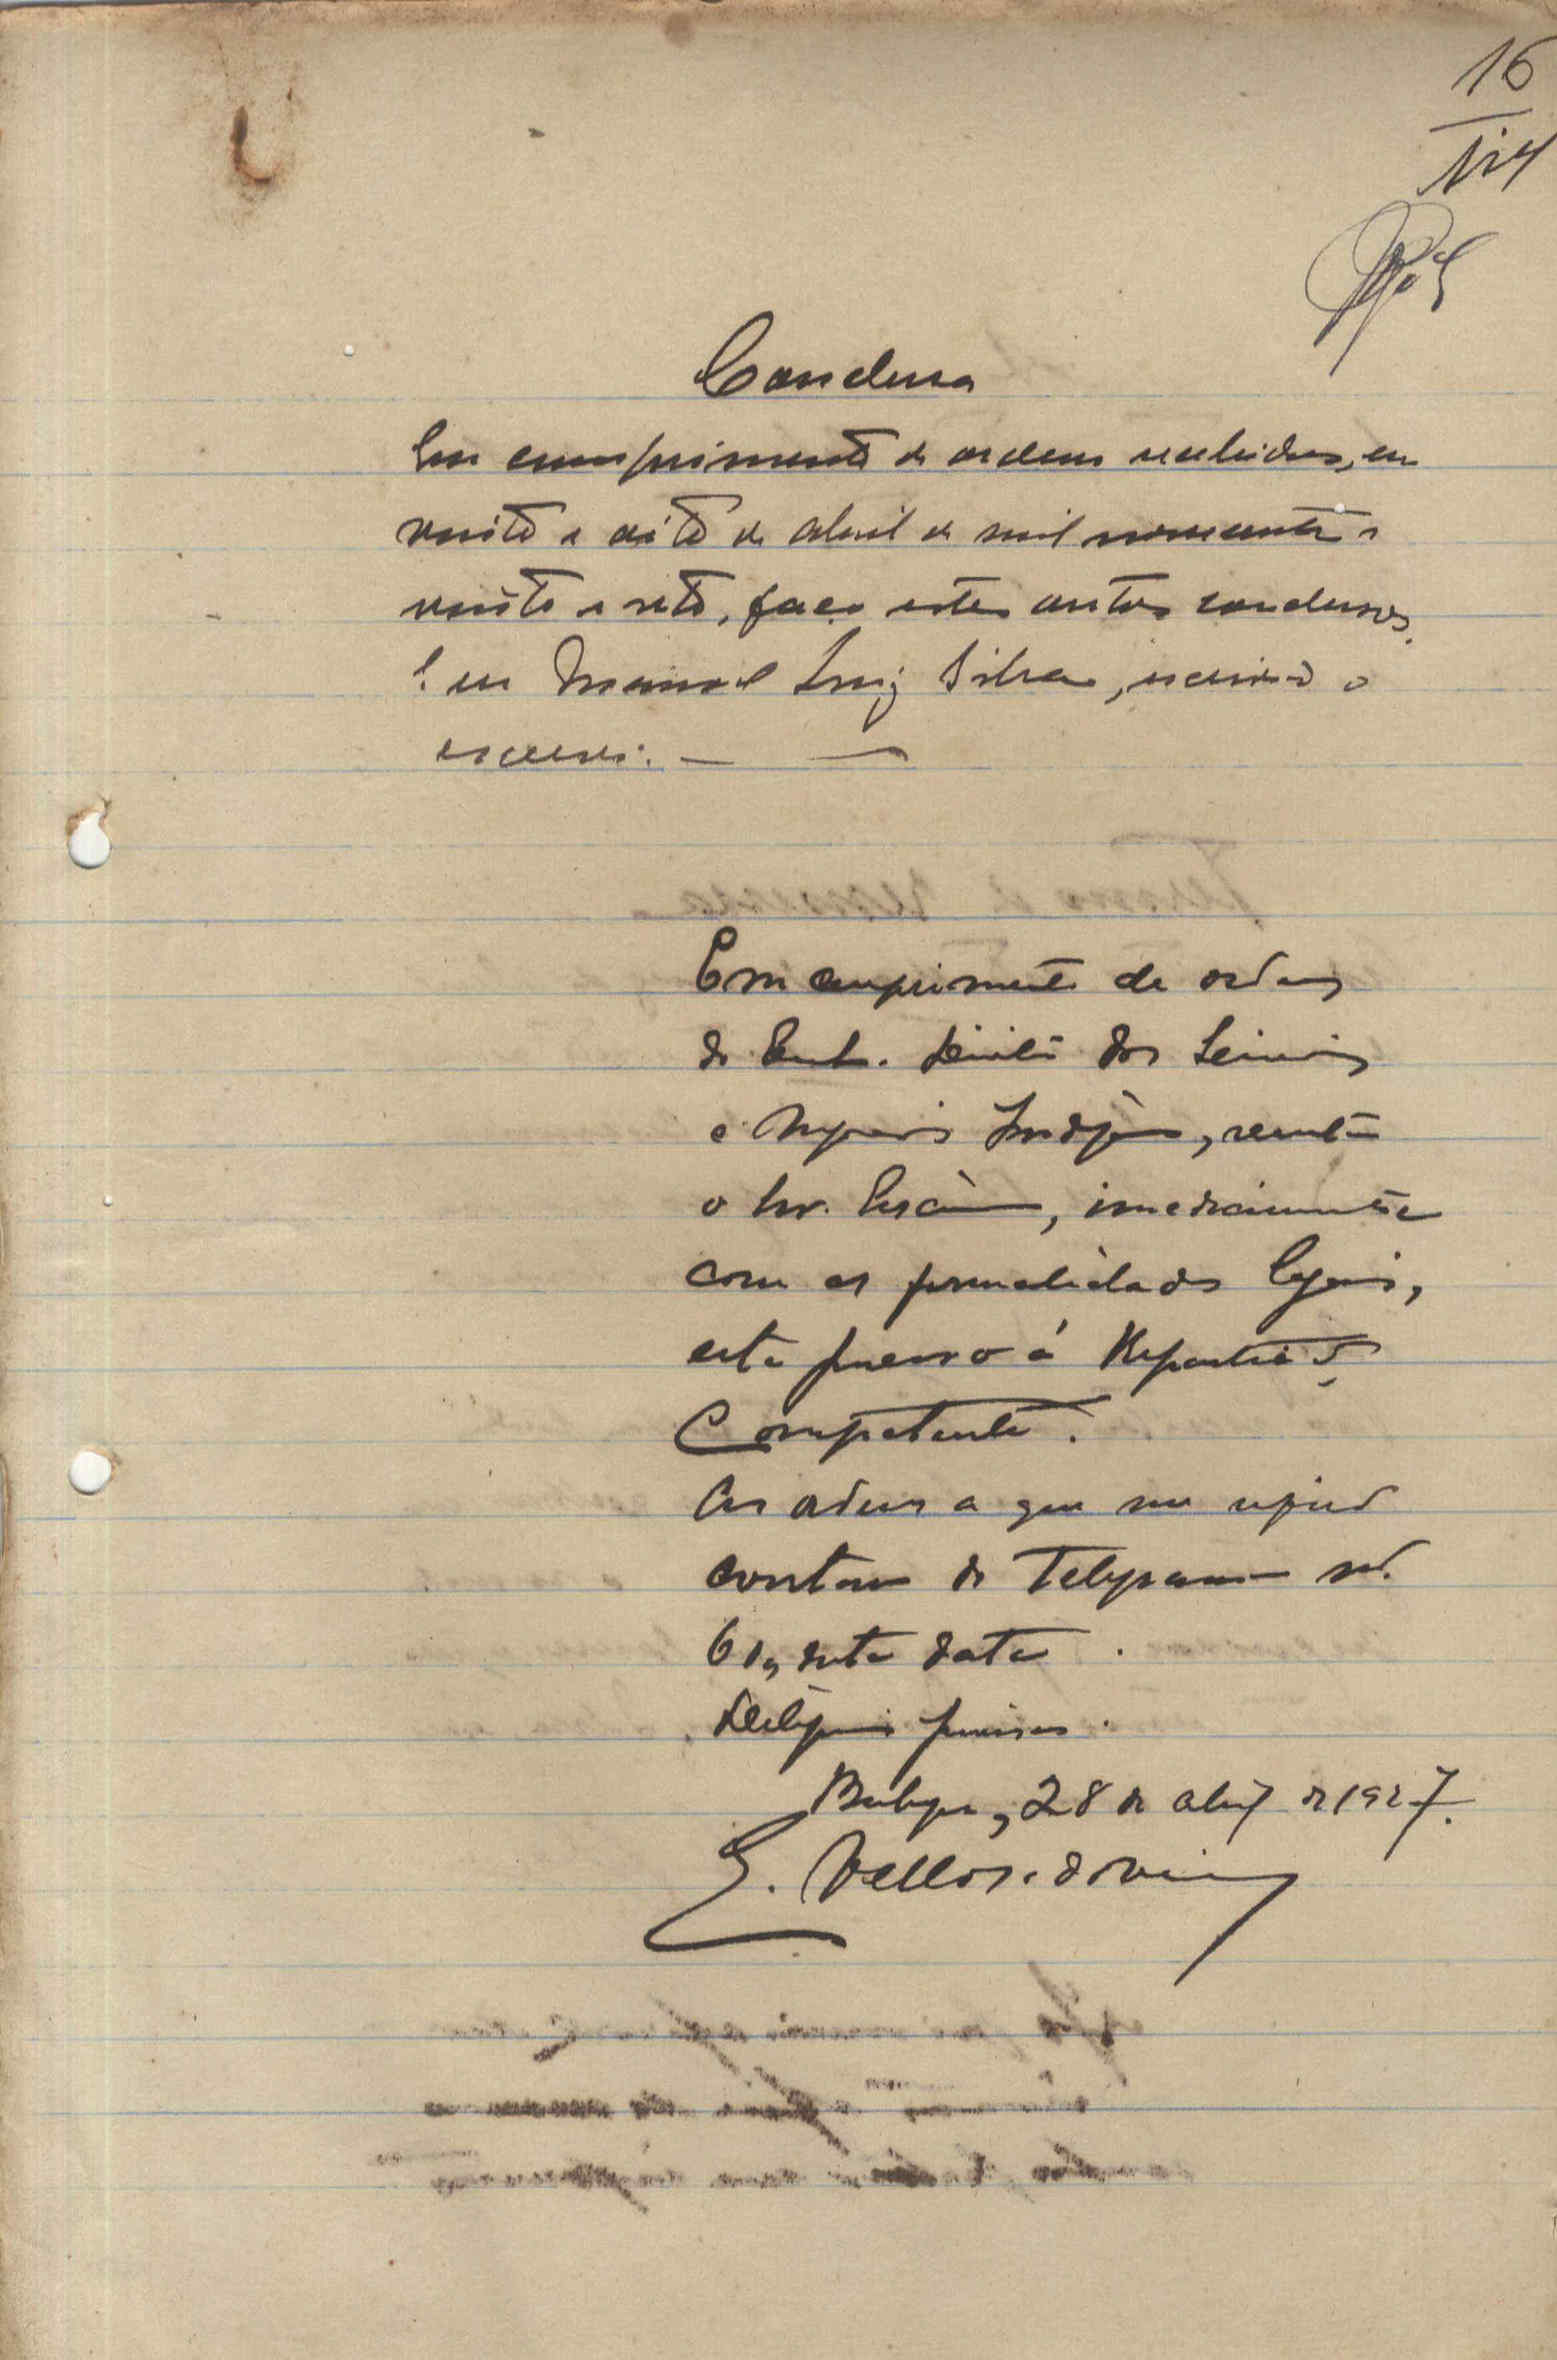 16
114
Conclusa
Em cumprimento de ordens recebidas, em
vinte e oito de Abril de mil novecentos e
vinte e sete, faço estes autos conclusos.
Eu Manoel Luiz Silva, escrivão o
escrevi.
Termo de remessa
Em cumprimento de ordens
do dos Serviços
e Negocios Indígenas, remeta
o Snr. Escrivão, imediatamente
com as formalidades legais,
este processo á Repartição
Competente.
As ordens a que me refiro
constam do Telegrama nº.
61, desta data.
Deligencias precisas.
28 de abril de 1927.
E. Vellos